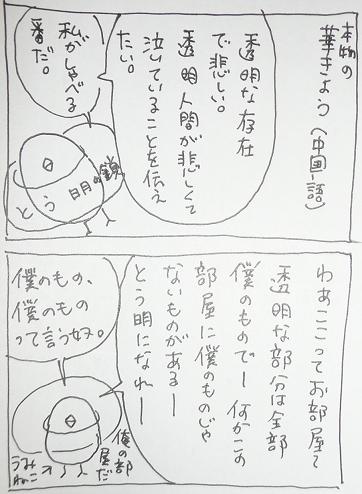 本物の
華きょう(中国−語)
透明な存在
で悲しい。
透明人間が悲しくて
泣いていることを伝え
たい。
私がしゃべる
番だ。
とう明の鎖
わあここってお部屋で
透明な部分は全部
僕のものでー何かこの
部屋に僕のものじゃ
ないものがあるー
とう明になれー
僕のもの、
僕のもの
って言う奴。
俺の部
屋だ
うみ
ねこ